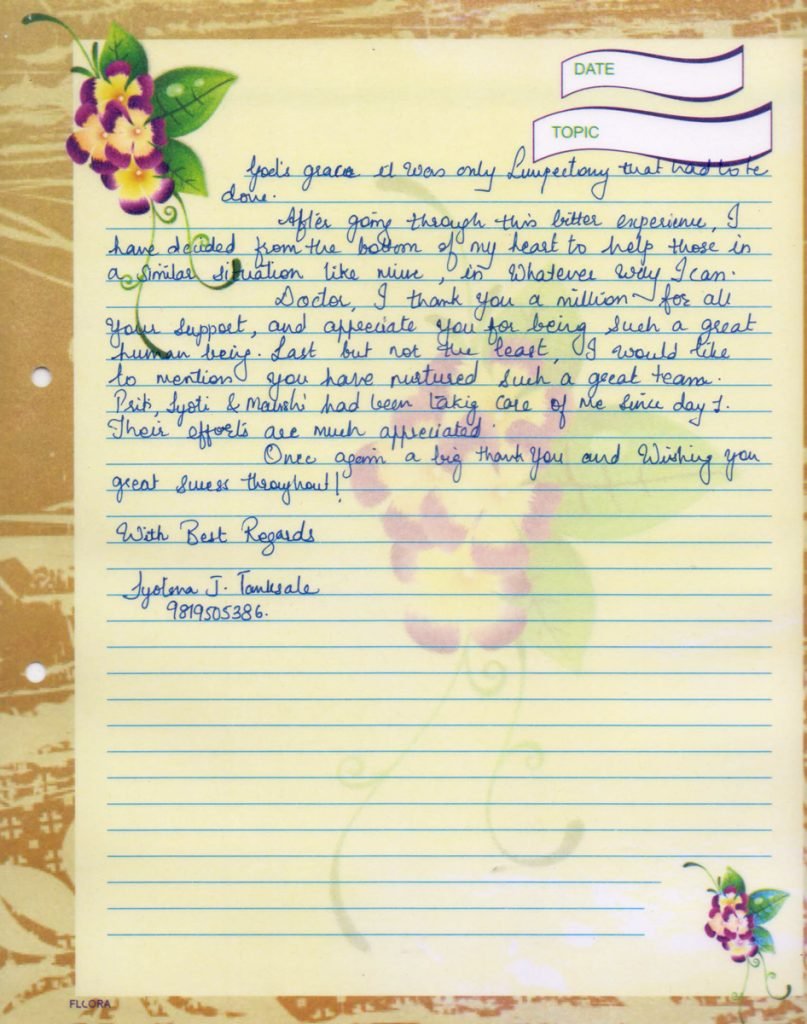 DATE
TOPIC
God's grace it was only Lumpectomy that had to be
done.
After going through this bitter experience, I
have decided from the bottom of my heart to help those in
a similar situation like mine, in whatever way I can.
Doctor, I thank you a million for all
your support, and appeciate you for being such a great
human being. Last but not the least, I would like
to mention you have nurtured such a great team.
Priti, Jyoti & Manshi had been takig care of me since day 1.
Their efforts are much appreciated.
Once again a big thank you and Wishing you
great sucess throughout!
With Best Regards
Jyotsna J. Tanksale
9819505386.
FLLORA